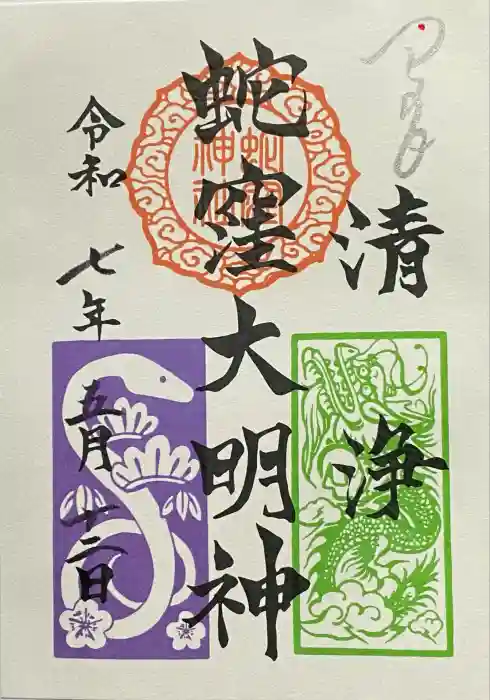 清浄
蛇窪大明神
蛇窪神社
令和七年五月十二日